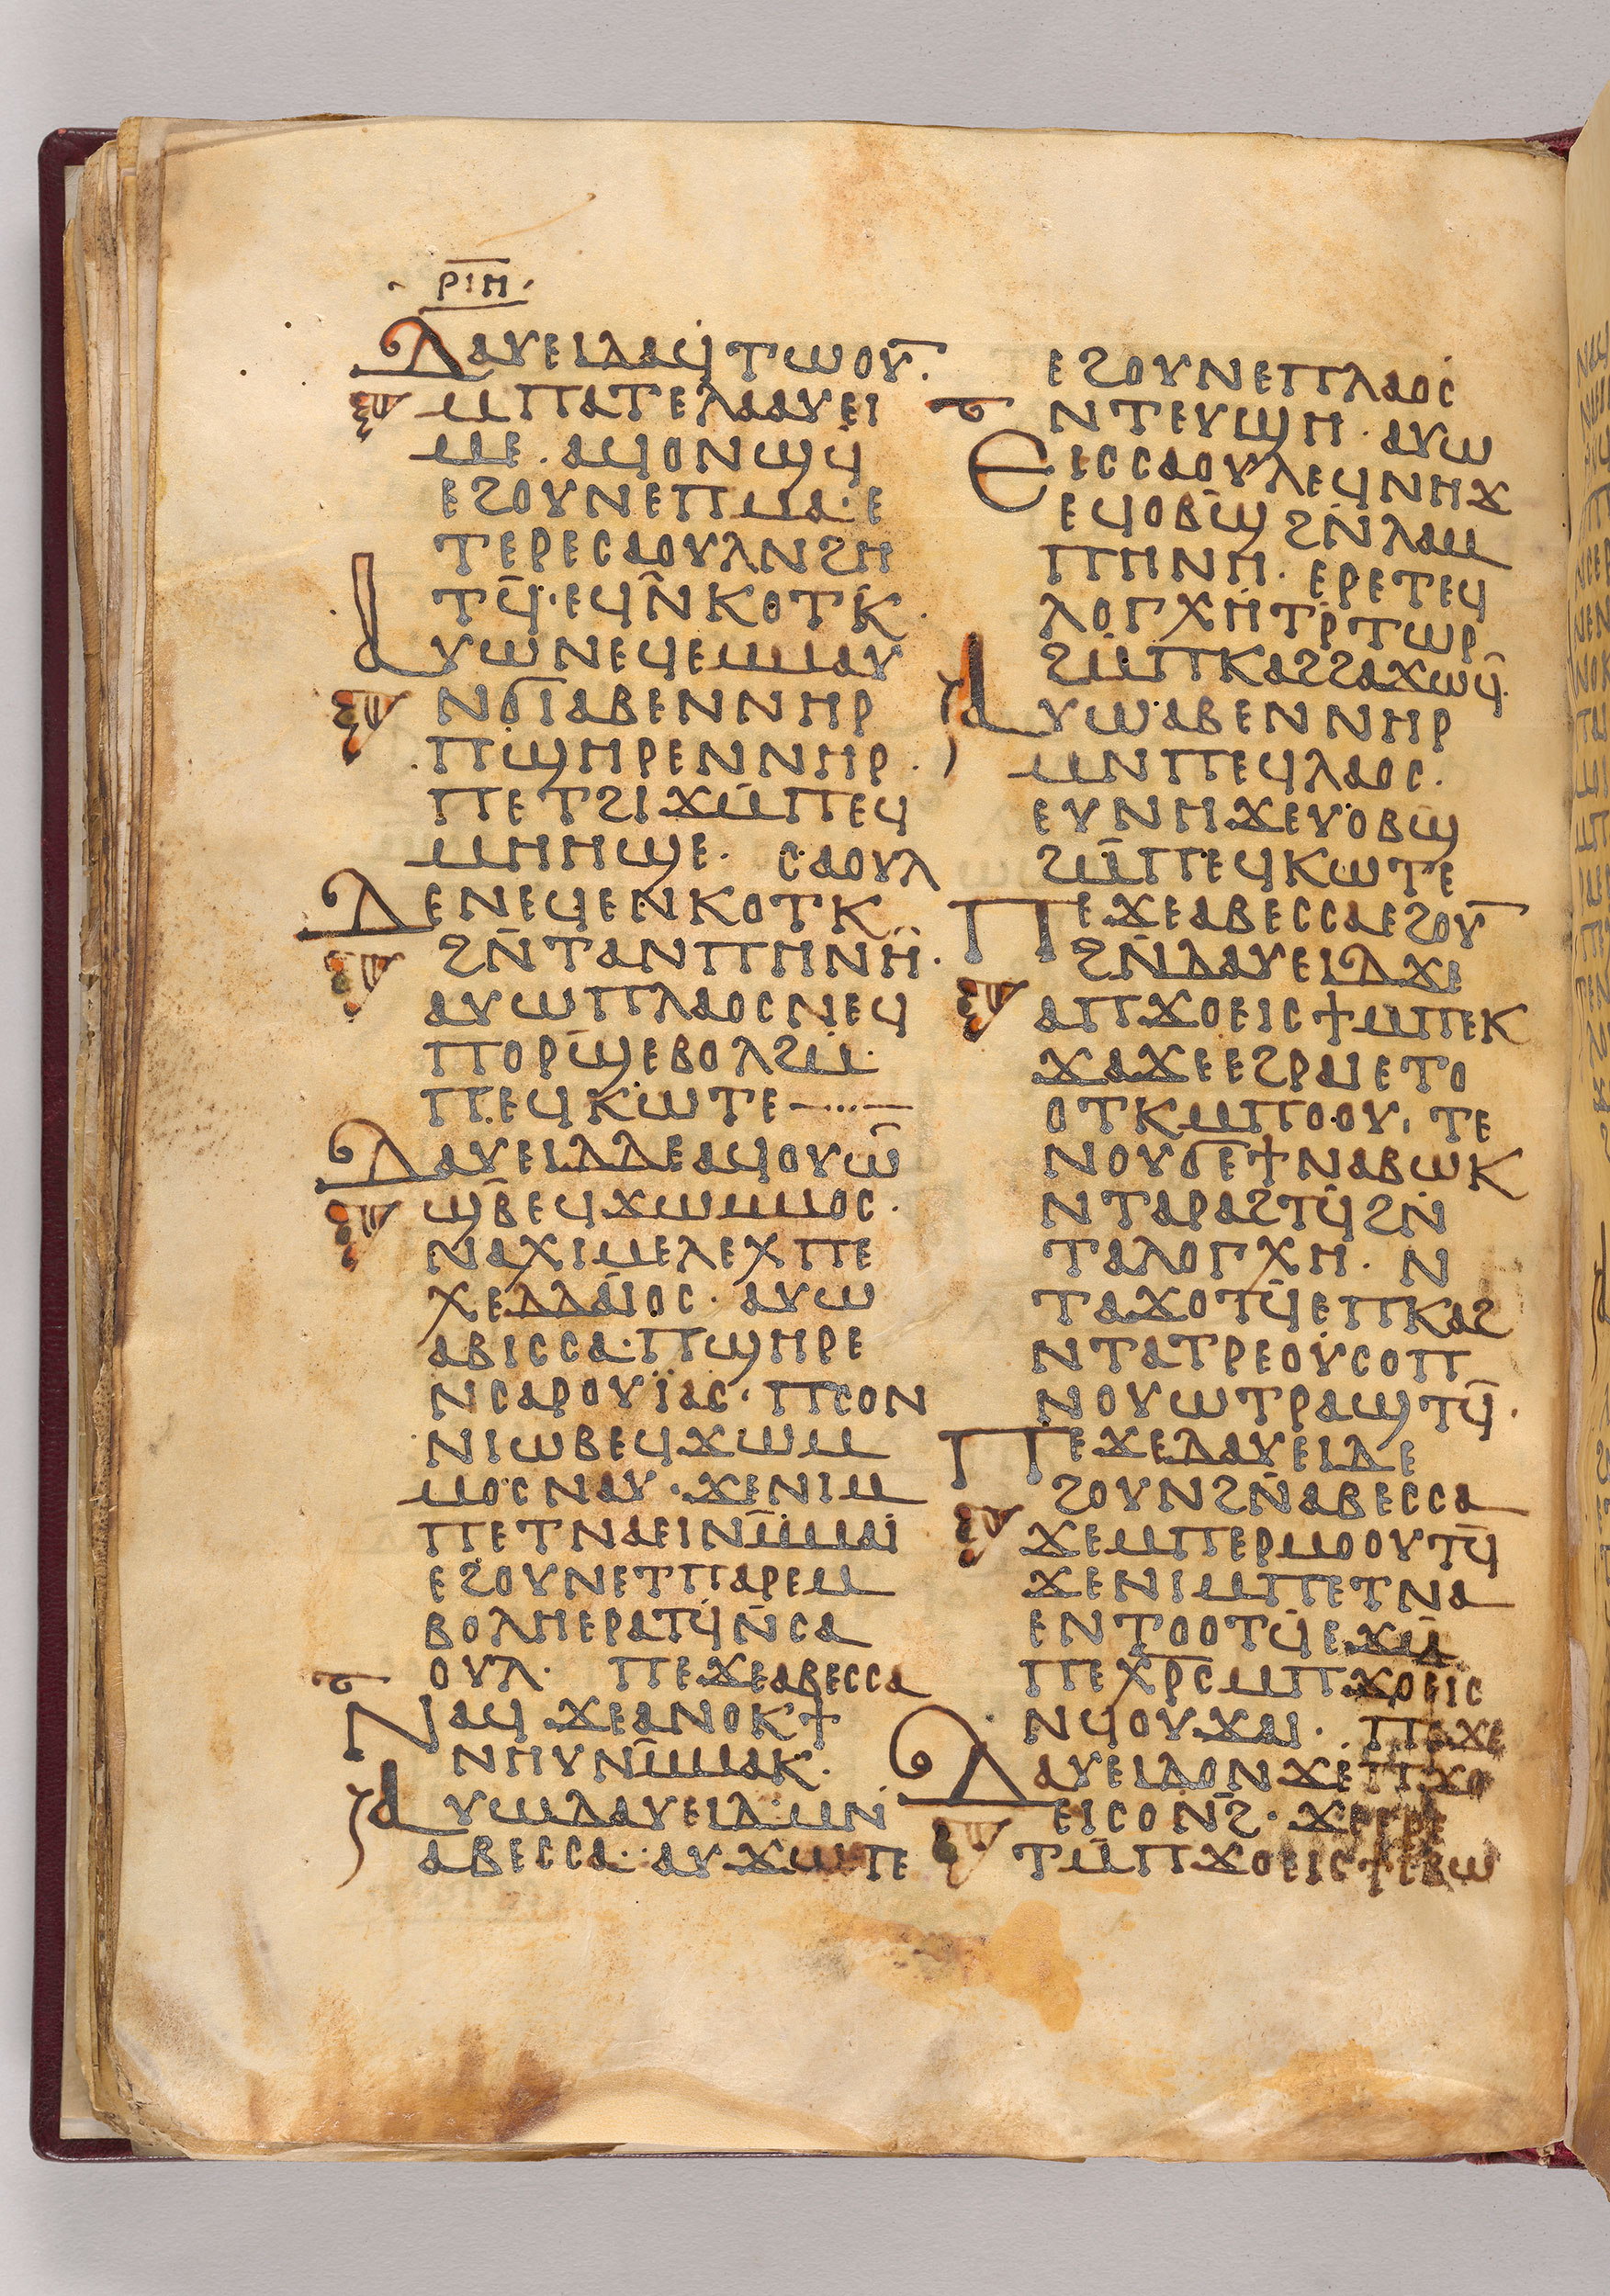 ⲣⲓⲏ
ⲇⲁⲩⲉⲓⲇⲁϥⲧⲱⲟⲩ̅.
ⲙⲡⲁⲧⲉⲗⲁⲁⲩⲉⲓ
ⲙⲉ. ⲁϥⲟⲛϣϥ̄
ⲉϩⲟⲩⲛⲉⲡⲙⲁ·ⲉ
ⲧⲉⲣⲉⲥⲁⲟⲩⲗⲛϩⲏ
ⲧϥ̄·ⲉϥⲛ̄ⲕⲟⲧⲕ̇
ⲁⲩⲱⲛⲉϥⲉⲙⲙⲁⲩ
ⲛϭⲓⲁⲃⲉⲛⲛⲏⲣ
ⲡϣⲏⲣⲉⲛⲛⲏⲣ.
ⲡⲉⲧϩⲓϫⲙ̄ⲡⲉϥ
ⲙⲏⲏϣⲉ. ⲥⲁⲟⲩⲗ
ⲇⲉⲛⲉϥⲉⲛⲕⲟⲧⲕ
ϩⲛ̄ⲧⲁⲛⲡⲏⲛⲏ̈.
ⲁⲩⲱⲡⲗⲁⲟⲥⲛⲉϥ
ⲡⲟⲣϣ̄ⲉⲃⲟⲗϩⲙ̇
ⲡⲉϥⲕⲱⲧⲉ—····—
ⲇⲁⲩⲉⲓⲇⲇⲉⲁϥⲟⲩⲱ̄
ϣⲃ̄ⲉϥϫⲱⲙⲙⲟⲥ.
ⲛⲁⲭⲓⲙⲉⲗⲉⲭⲡⲉ
ⲭⲉⲇⲇⲁⲓ̄ⲟⲥ· ⲁⲩⲱ
ⲁⲃⲓⲥⲥⲁ·ⲡϣⲏⲣⲉ
ⲛⲥⲁⲣⲟⲩⲓ̈ⲁⲥ·ⲡⲥⲟⲛ
ⲛⲓⲱⲃⲉϥϫⲱⲙ
ⲙⲟⲥⲛⲁⲩ·ϫⲉⲛⲓⲙ
ⲡⲉⲧⲛⲁⲉⲓⲛⲙ̄ⲙⲁⲓ̈
ⲉϩⲟⲩⲛⲉⲧⲡⲁⲣⲉⲙ
ⲃⲟⲗⲏⲉⲣⲁⲧϥ̇ⲛ̄ⲥⲁ
ⲟⲩⲗ. ⲡⲉϫⲉⲁⲃⲉⲥⲥⲁ
ⲛⲁϥ ϫⲉⲁⲛⲟⲕϯ
ⲛⲏⲩⲛⲙ̄ⲙⲁⲕ.
ⲁⲩⲱⲇⲁⲩⲉⲓⲇ·ⲙⲛ̇
ⲁⲃⲉⲥⲥⲁ·ⲁⲩϫⲱⲧⲉ
ⲉϩⲟⲩⲛⲉⲡⲗⲁⲟⲥ
ⲛⲧⲉⲩϣⲏ· ⲁⲩⲱ
ⲉⲓⲥⲥⲁⲟⲩⲗⲉϥⲛⲏϫ
ⲉϥⲟⲃϣ̄ϩⲛ̄ⲗⲁⲙ
ⲡⲏⲛⲏ. ⲉⲣⲉⲧⲉϥ
ⲗⲟⲅⲭⲏⲧⲣ̄ⲧⲱⲣ
ϩⲙ̄ⲡⲕⲁϩϩⲁϫⲱϥ̄
ⲁⲩⲱⲁⲃⲉⲛⲛⲏⲣ
ⲙⲛⲡⲉϥⲗⲁⲟⲥ.
ⲉⲩⲛⲏϫⲉⲩⲟⲃϣ
ϩⲙ̄ⲡⲉϥⲕⲱⲧⲉ
ⲡⲉϫⲉⲁⲃⲉⲥⲥⲁⲉϩⲟⲩ̅
ϩⲛ̄ⲇⲁⲩⲉⲓⲇϫⲉ
ⲁⲡϫⲟⲉⲓⲥϯⲙⲡⲉⲕ
ϫⲁϫⲉⲉϩⲣⲁⲓⲉⲧⲟ
ⲟⲧⲕⲙⲡⲟⲟⲩ, ⲧⲉ
ⲛⲟⲩϭⲉϯⲛⲁⲃⲱⲕ
ⲛⲧⲁⲣⲁϩⲧϥ̄ϩⲛ̇
ⲧⲁⲗⲟⲅⲭⲏ. ⲛ̇
ⲧⲁϫⲟⲧϥ̄ⲉⲡⲕⲁϩ
ⲛⲧⲁⲧⲣⲉⲟⲩⲥⲟⲡ
ⲛⲟⲩⲱⲧⲣⲁϣⲧϥ̄.
ⲡⲉϫⲉⲇⲁⲩⲉⲓⲇⲉ
ϩⲟⲩⲛϩⲛ̄ⲁⲃⲉⲥⲥⲁ
ϫⲉⲙⲡⲉⲣⲙⲟⲟⲩⲧϥ̄
ϫⲉⲛⲓⲙⲡⲉⲧⲛⲁ
ⲉⲛⲧⲟⲟⲧϥ̄ⲉϫⲙ̄
ⲡⲉⲭ̅ⲣ̅ⲥⲙⲡϫⲟⲉⲓⲥ
ⲛϥⲟⲩϫⲁⲓ. ⲡⲉϫⲉ
ⲇⲁⲩⲉⲓⲇⲟⲛϫⲉⲡϫⲟ
ⲉⲓⲥⲟⲛϩ̄· ϫⲉⲉⲣⲉ
ⲧⲙ̄ⲡϫⲟⲉⲓⲥϯⲉⲃⲱ